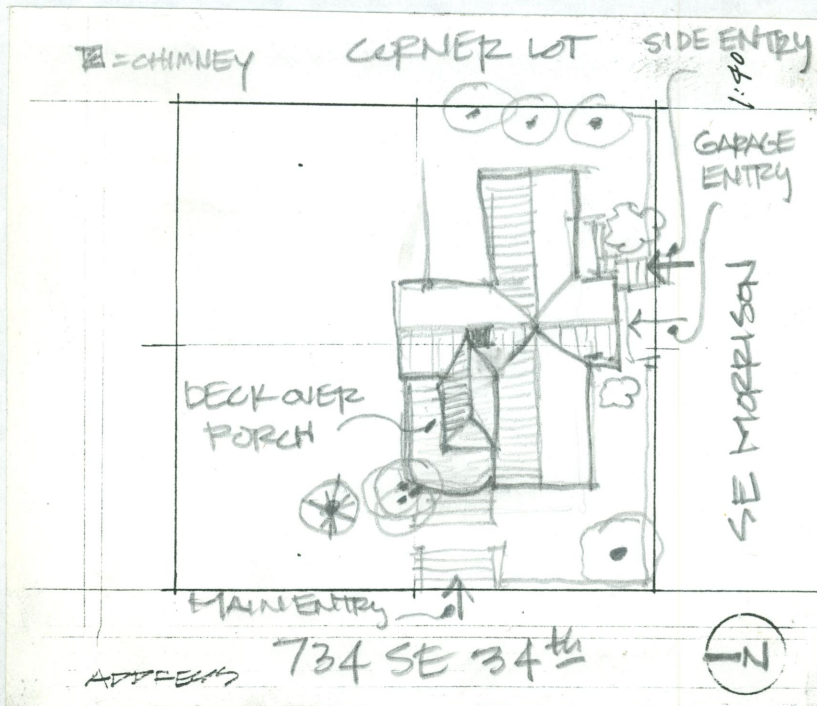 = CHIMNEY
CORNER LOT
SIDE ENTRY
1:40
GARAGE
ENTRY
SE MORRISON
DECK OVER
PORCH
MAIN ENTRY
734 SE 34th
ADDRESS
N